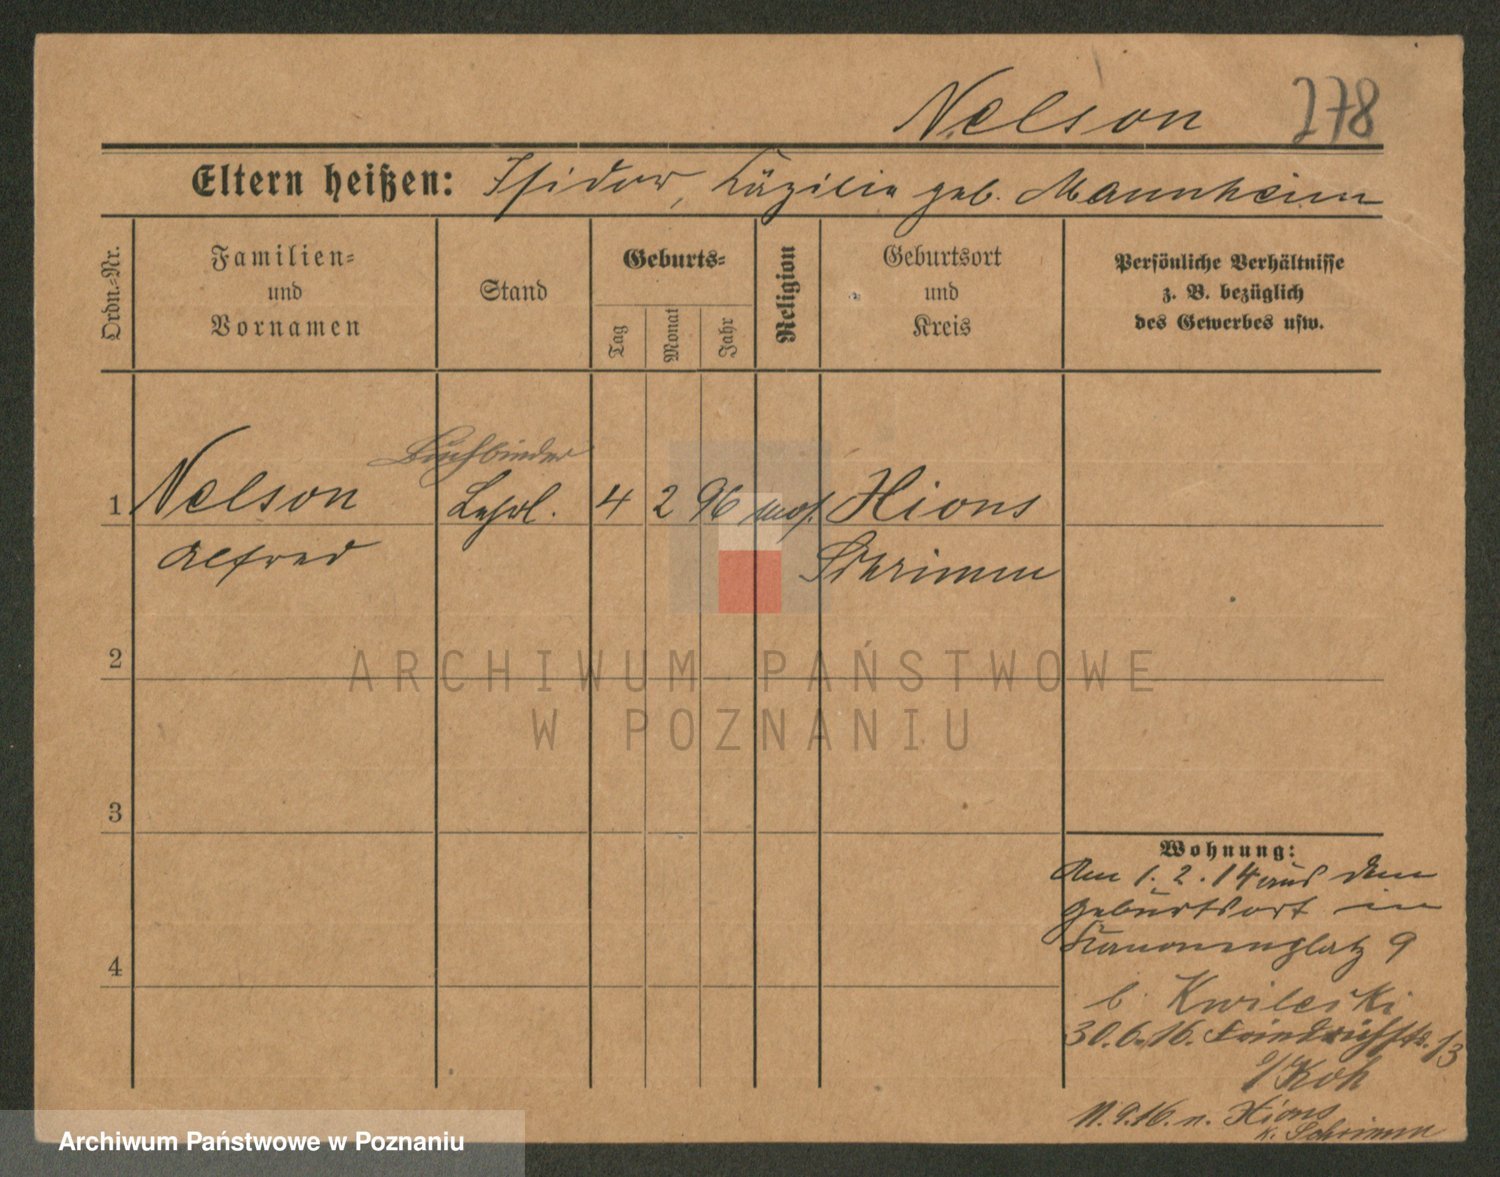 Nelson 278
Eltern heißen: Isidor, Cäzilie geb. Mannheim
Ordn.-Nr.
Familien- und Vornamen
Stand
Geburts-
Tag
Monat
Jahr
Religion
Geburtsort und Kreis
Persönliche Verhältnisse
z. B. bezüglich
des Gewerbes usw.
Buchbinder
1 Nelson Lehrl. 4 2 96 mos. Xions
Alfred Schrimm
2
3
4
Wohnung:
Am 1.2.14 aus dem
Geburtsort in
Kanonenplatz 9
b. Kwilecki
30.6.16. Friedrichstr. 13
b/Koh
11.9.16. n. Xions
K. Schrimm
ARCHIWUM PAŃSTWOWE
W POZNANIU
Archiwum Państwowe w Poznaniu